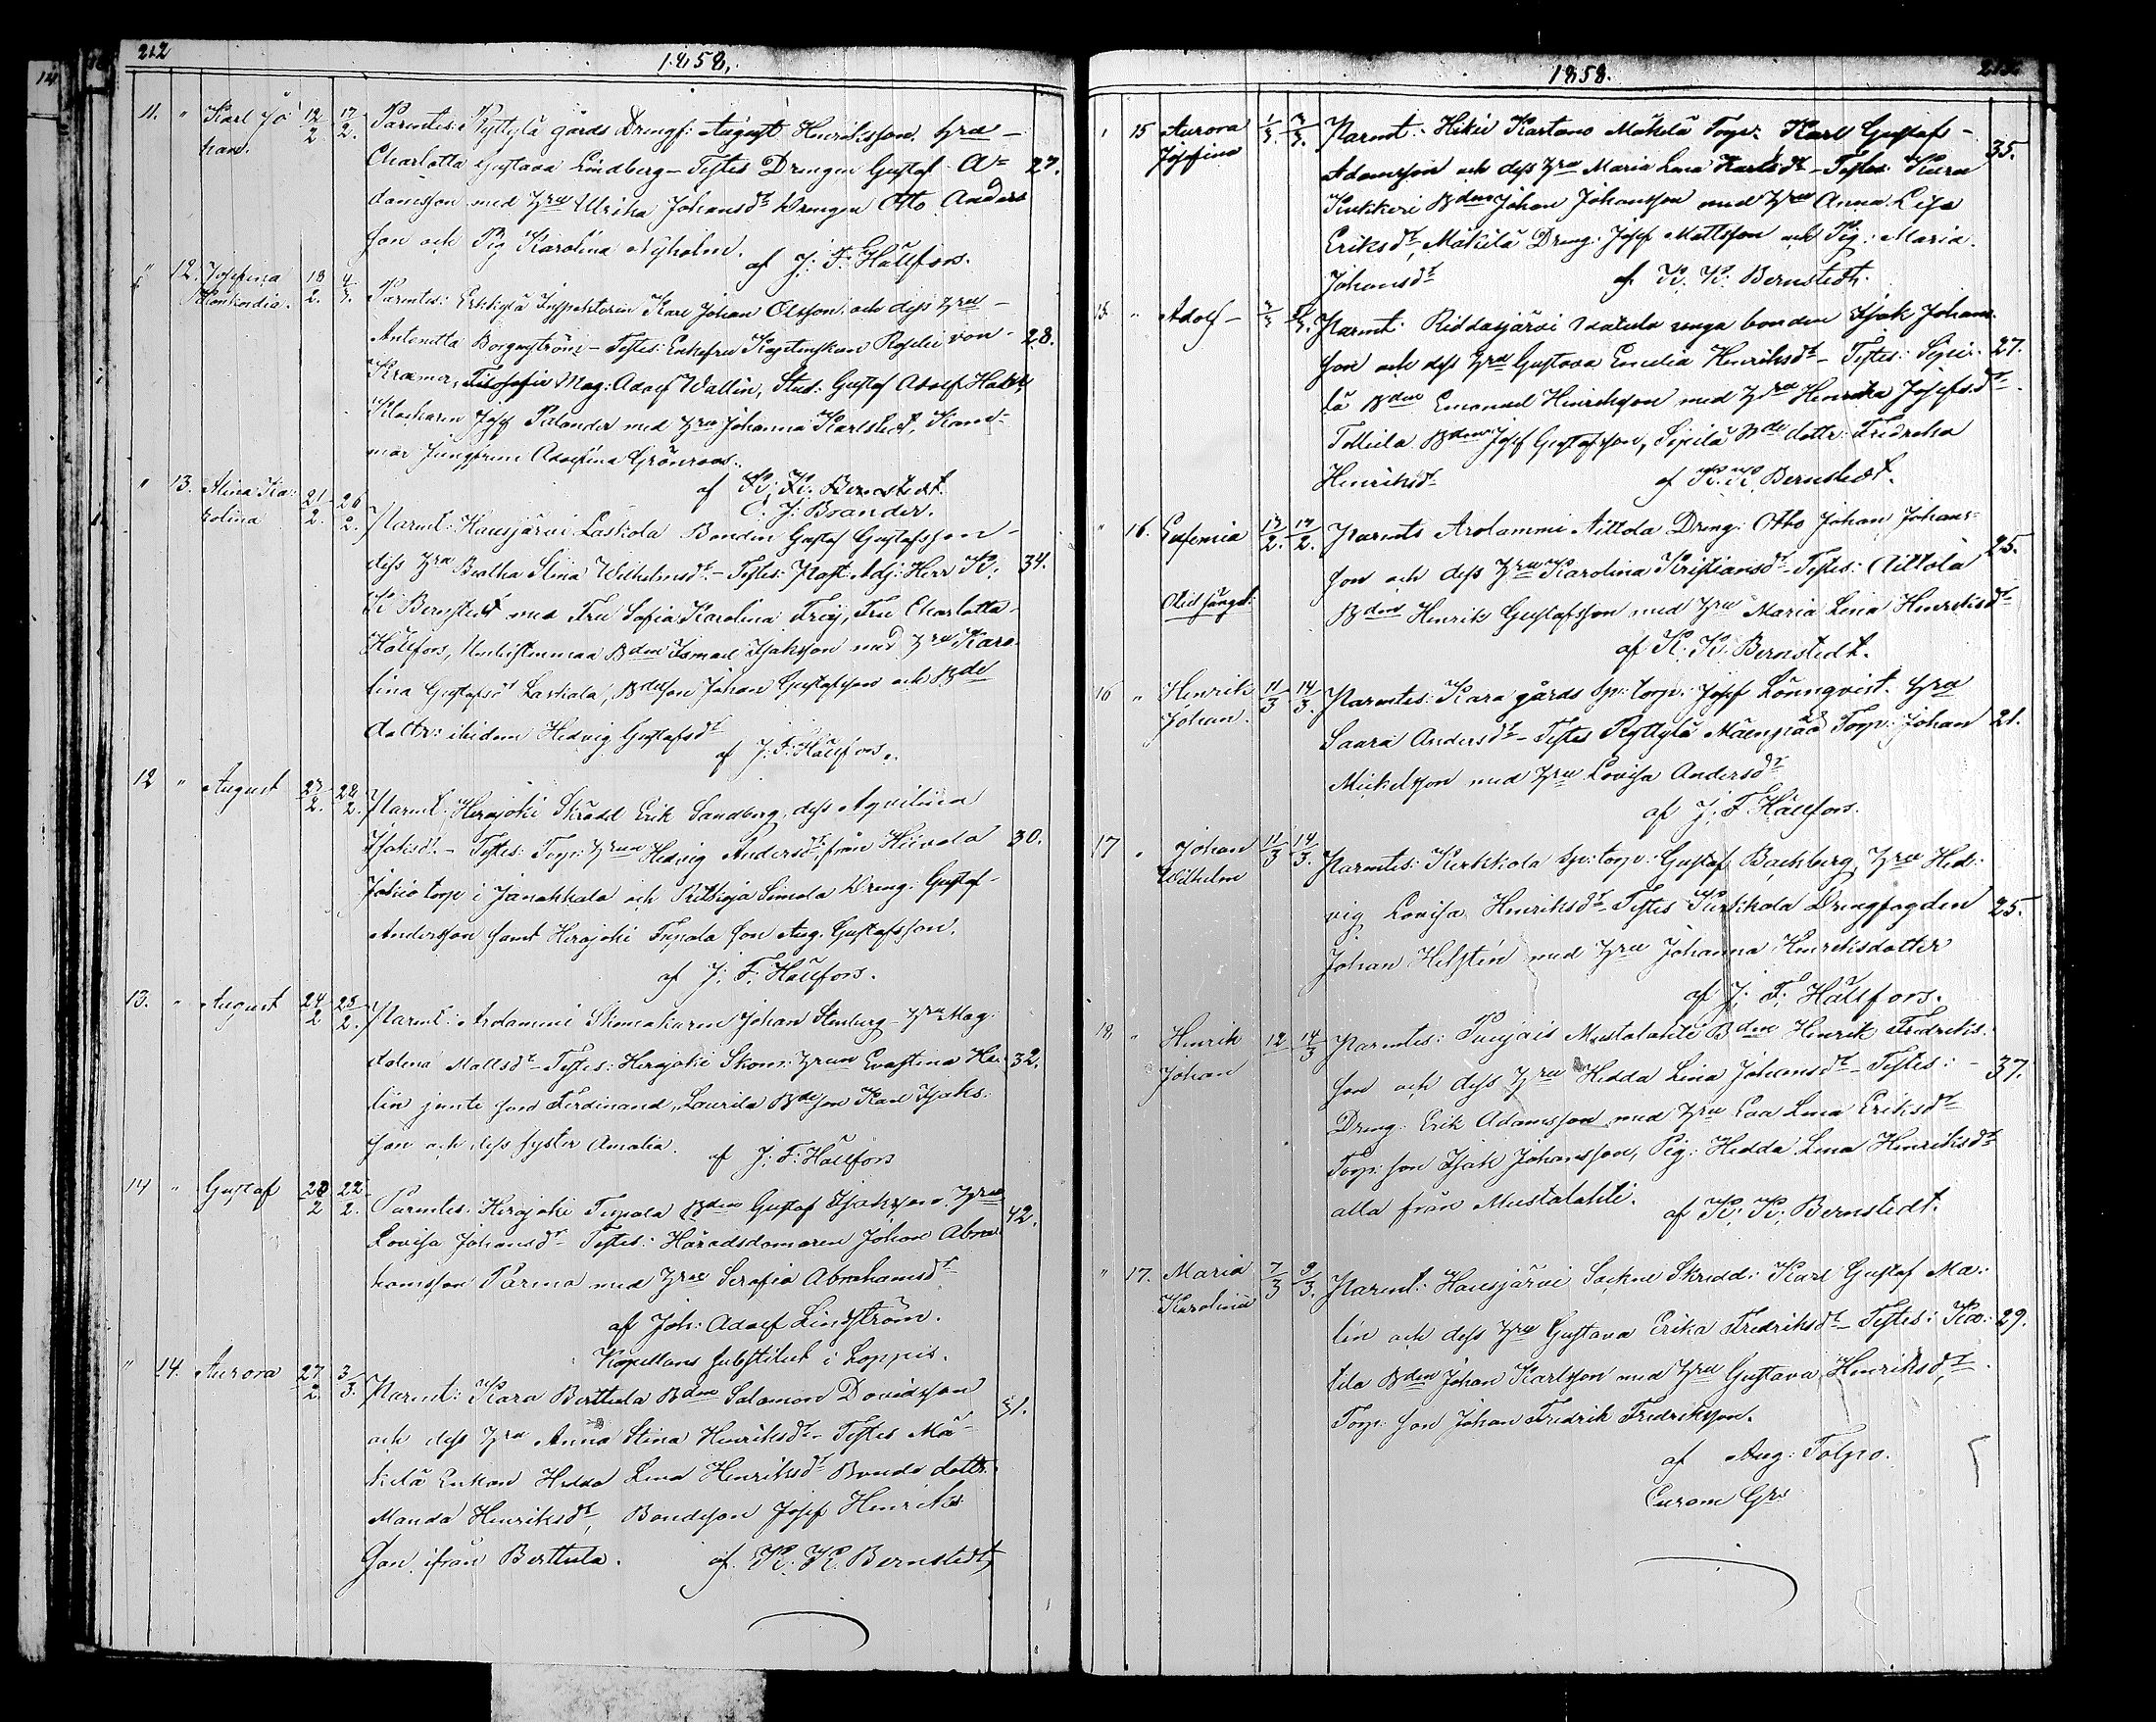 212
1858.
11. " Karl Jo- 12/2 17/2. Parentes: Ryttylä gårds Drengf: August Henriksson. hru -
han. Charlotta Gustava Lindberg - Testes Drengen Gustaf A= 27.
damsson med hru Ulrika Johansdr Drengen Otto Anders
son och Pig Karolina Nyholm. af J: F: Hällfors.
" 12. Josefina 18/2. 4/3. Parentes: Erkkylä Inspektorin Karl Johan Olsson och dess hru -
Konkordia. Antonetta Borgström - Testes: Enkefru Kaptenskan Rosalie von - 28.
Kræmer, Filosofie Mag: Adolf Wallin, Stud: Gustaf Adolf
Klockaren Josef Palander med hru Johanna Karlstedt, Kam-
mar Jungfrun Adolfina Grönroos.
af K: K: Bernstedt.
C. J: Brander.
" 13. Stina Ka- 21/2. 26/2. Parent: Hausjärvi Laskola Bonden Gustaf Gustafsson -
rolina dess hru Beatha Stina Wilhelmsdr. - Testes: Past: Adj: Herr K: 34.
K Bernstedt med Fru Sofia Karolina Frey, Fru Charlotta
Hällfors, Bden Ismael Isaksson med hru Karo-
lina Gustafsdr Laskola, Bdeson Johan Gustafsson och Bde
dottr: ibidem Hedvig Gustafsdr
af J: F: Hällfors.
12 " August 27/2. 28/2. Parent: Herajoki Skrädd Erik Sandberg, dess Aqvilina
Isaksdr. - Testes: Torp: hrun Hedvig Andersdr, från Hiivola 30.
Jokio torp i Janakkala och Simola Dreng: Gustaf -
Andersson samt Herajoki Tupala son Aug. Gustafsson.
af J. F. Hällfors.
13. " August 24/2 25/2. Parent: Arolammi Skomakaren Johan Stenberg - hru Mag-
dalena Mattsdr - Testes: Herajoki Skom: hrun Evastina He- 32.
lin jemte son Ferdinand, Laurila Bdeson Karl Isaks-
son och dess syster Amalia. af J: F: Hällfors
14 " Gustaf 20/2 22/2. Parentes: Herajoki Tupala Bden Gustaf Isaksson. hru 42.
Lovisa Johansdr - Testes: Häradsdomaren Johan Abra-
hamsson Parma med hru Serafia Abrahamsdr
af Joh: Adolf Lindström.
Kapellans substitut i Loppis.
" 14. Aurora 27/2. 3/3. Parent: Kara Berttula Bden Salomon Davidsson 31.
och dess hru Anna Stina Henriksdr - Testes Mä-
kelä Enkan Hedda Lena Henriksdr Bonde dottr.
Manda Henriksdr, Bondeson Josef Henriks
son ifrån Berttula. af K: K. Bernstedt
1858.
15 Aurora 1/3. Parent: Hikiä Kartano Mäkelä Torp: Karl Gustaf - 35.
Josefina Adamsson och dess hru Maria Lena Karlsdr - Testes: Kuru
Kukkeri Bden Johan Johansson med hru Anna Lisa
Eriksdr, Mäkilä Dreng: Josef Mattsson och Pig: Maria
Johansdr af K. K: Bernstedt.
15 " Adolf - Parent: Riddasjärvi unga bonden Isak Johans-
son och dess hru Gustava Emelia Henriksdr - Testes: Sipi- 27.
lä Bden Emanuel Henriksson med hru Henrika Josefsdr
Tollila Bden Josef Gustafsson, Sipilä Bde dottr: Fredrika
Henriksdr af K. K. Bernstedt.
" 16. Eufemia 13/2. 14/2. Parents Arolammi Aittola Dreng: Otto Johan Johans-
son och dess hru Karolina Kristiansdr - Testes: Aittola 25.
Bden Henrik Gustafsson med hru Maria Lena Henriksdr
af K. K. Bernstedt.
16 " Henrik 11/3 14/3. Parentes: Kara gårds Sp: torp: Josef Lönnqvist. hru
Johan. Saara Andersdr - Testes Ryttylä Mäenpää Torp: Johan 21.
Mickelsson med hru Lovisa Andersdr
af J: F Hällfors.
17 " Johan 11/3 14/3. Parentes: Kurkkola Sp: torp: Gustaf Backberg, hru Hed-
Wilhelm vig Lovisa Henriksdr - Testes Kurkkola Drengfogden 25.
Johan Helstén med hru Johanna Henriksdotter
af J: F: Hällfors.
18, " Henrik 12 14/3 Parentes: Puujais Mustalahti Bden Henrik Fredriks-
Johan son och dess hru Hedda Lina Johansdr - Testes: - 37.
Dreng: Erik Adamsson med hru Eva Lena Eriksdr
Torp: son Isak Johansson, Pig: Hedda Lena Henriksdr
alla från Mustalahti. af K: K: Bernstedt.
" 17. Maria 7/3 9/3. Parent: Hausjärvi Sockne Skrädd: Karl Gustaf Ma-
Karolina lin och dess hru Gustava Erika Fredriksdr - Testes: Ka- 29.
tila Bden Johan Karlsson med hru Gustava Henriksdr,
Torp: son Johan Fredrik Fredriksson.
af Aug: Tolpo.